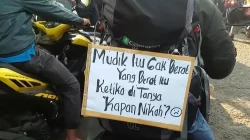 Mudik Itu Gak Berat
Yang Berat Itu
Ketika di Tanya
Kapan Nikah?